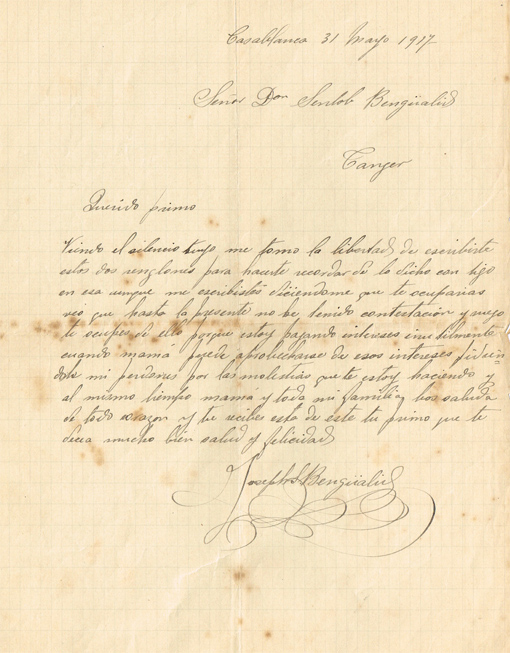 Casablanca 31 Mayo 1917
Señor Don Semtob Bengüalid
Tanger
Querido primo
Viendo el silencio tuyo me tomo la libertad de escribirte
estos dos renglones para hacerte recordar de lo dicho con tigo
en esa aunque me escribistes diciendome que te ocuparias
veo que hasta la presente no he tenido contestación y ruego
te ocupes de ello porque estoy pagando intereses inutilmente
cuando mamá puede aprobecharse de esos intereses pidien
dote mi perdones por las molestias que te estoy haciendo y
al mismo tiempo mamá y toda mi familia hos saluda
de todo corazon y tu recibes esta de este tu primo que te
decea mucho bien salud y felicidad
Joseph S. Bengüalid